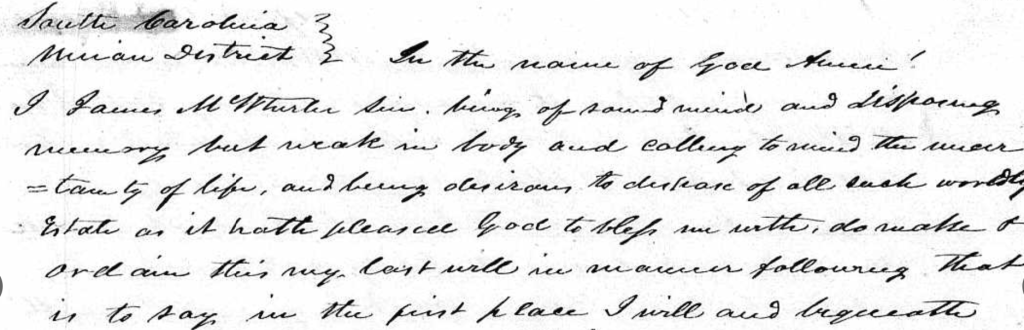 South Carolina
Union District } In the name of God Amen!
I James McWhirter Sen. being of sound mind and disposing
memory but weak in body and calling to mind the uncer
=tainty of life, and being desirous to dispose of all such worldly
Estate as it hath pleased God to bless me with, do make &
ordain this my last will in manner following that
is to say in the first place I will and bequeath